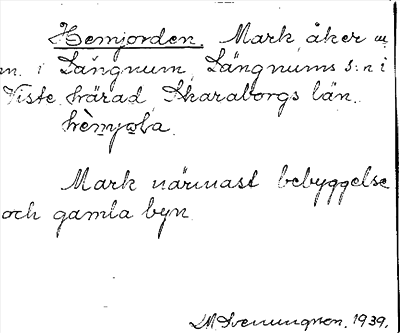 Hemjorden. Mark, åker m.
m. i Längnum, Längnums s:n i
Viste härad, Skaraborgs län.
Mark närmast bebyggelse
och gamla byn.
1939.